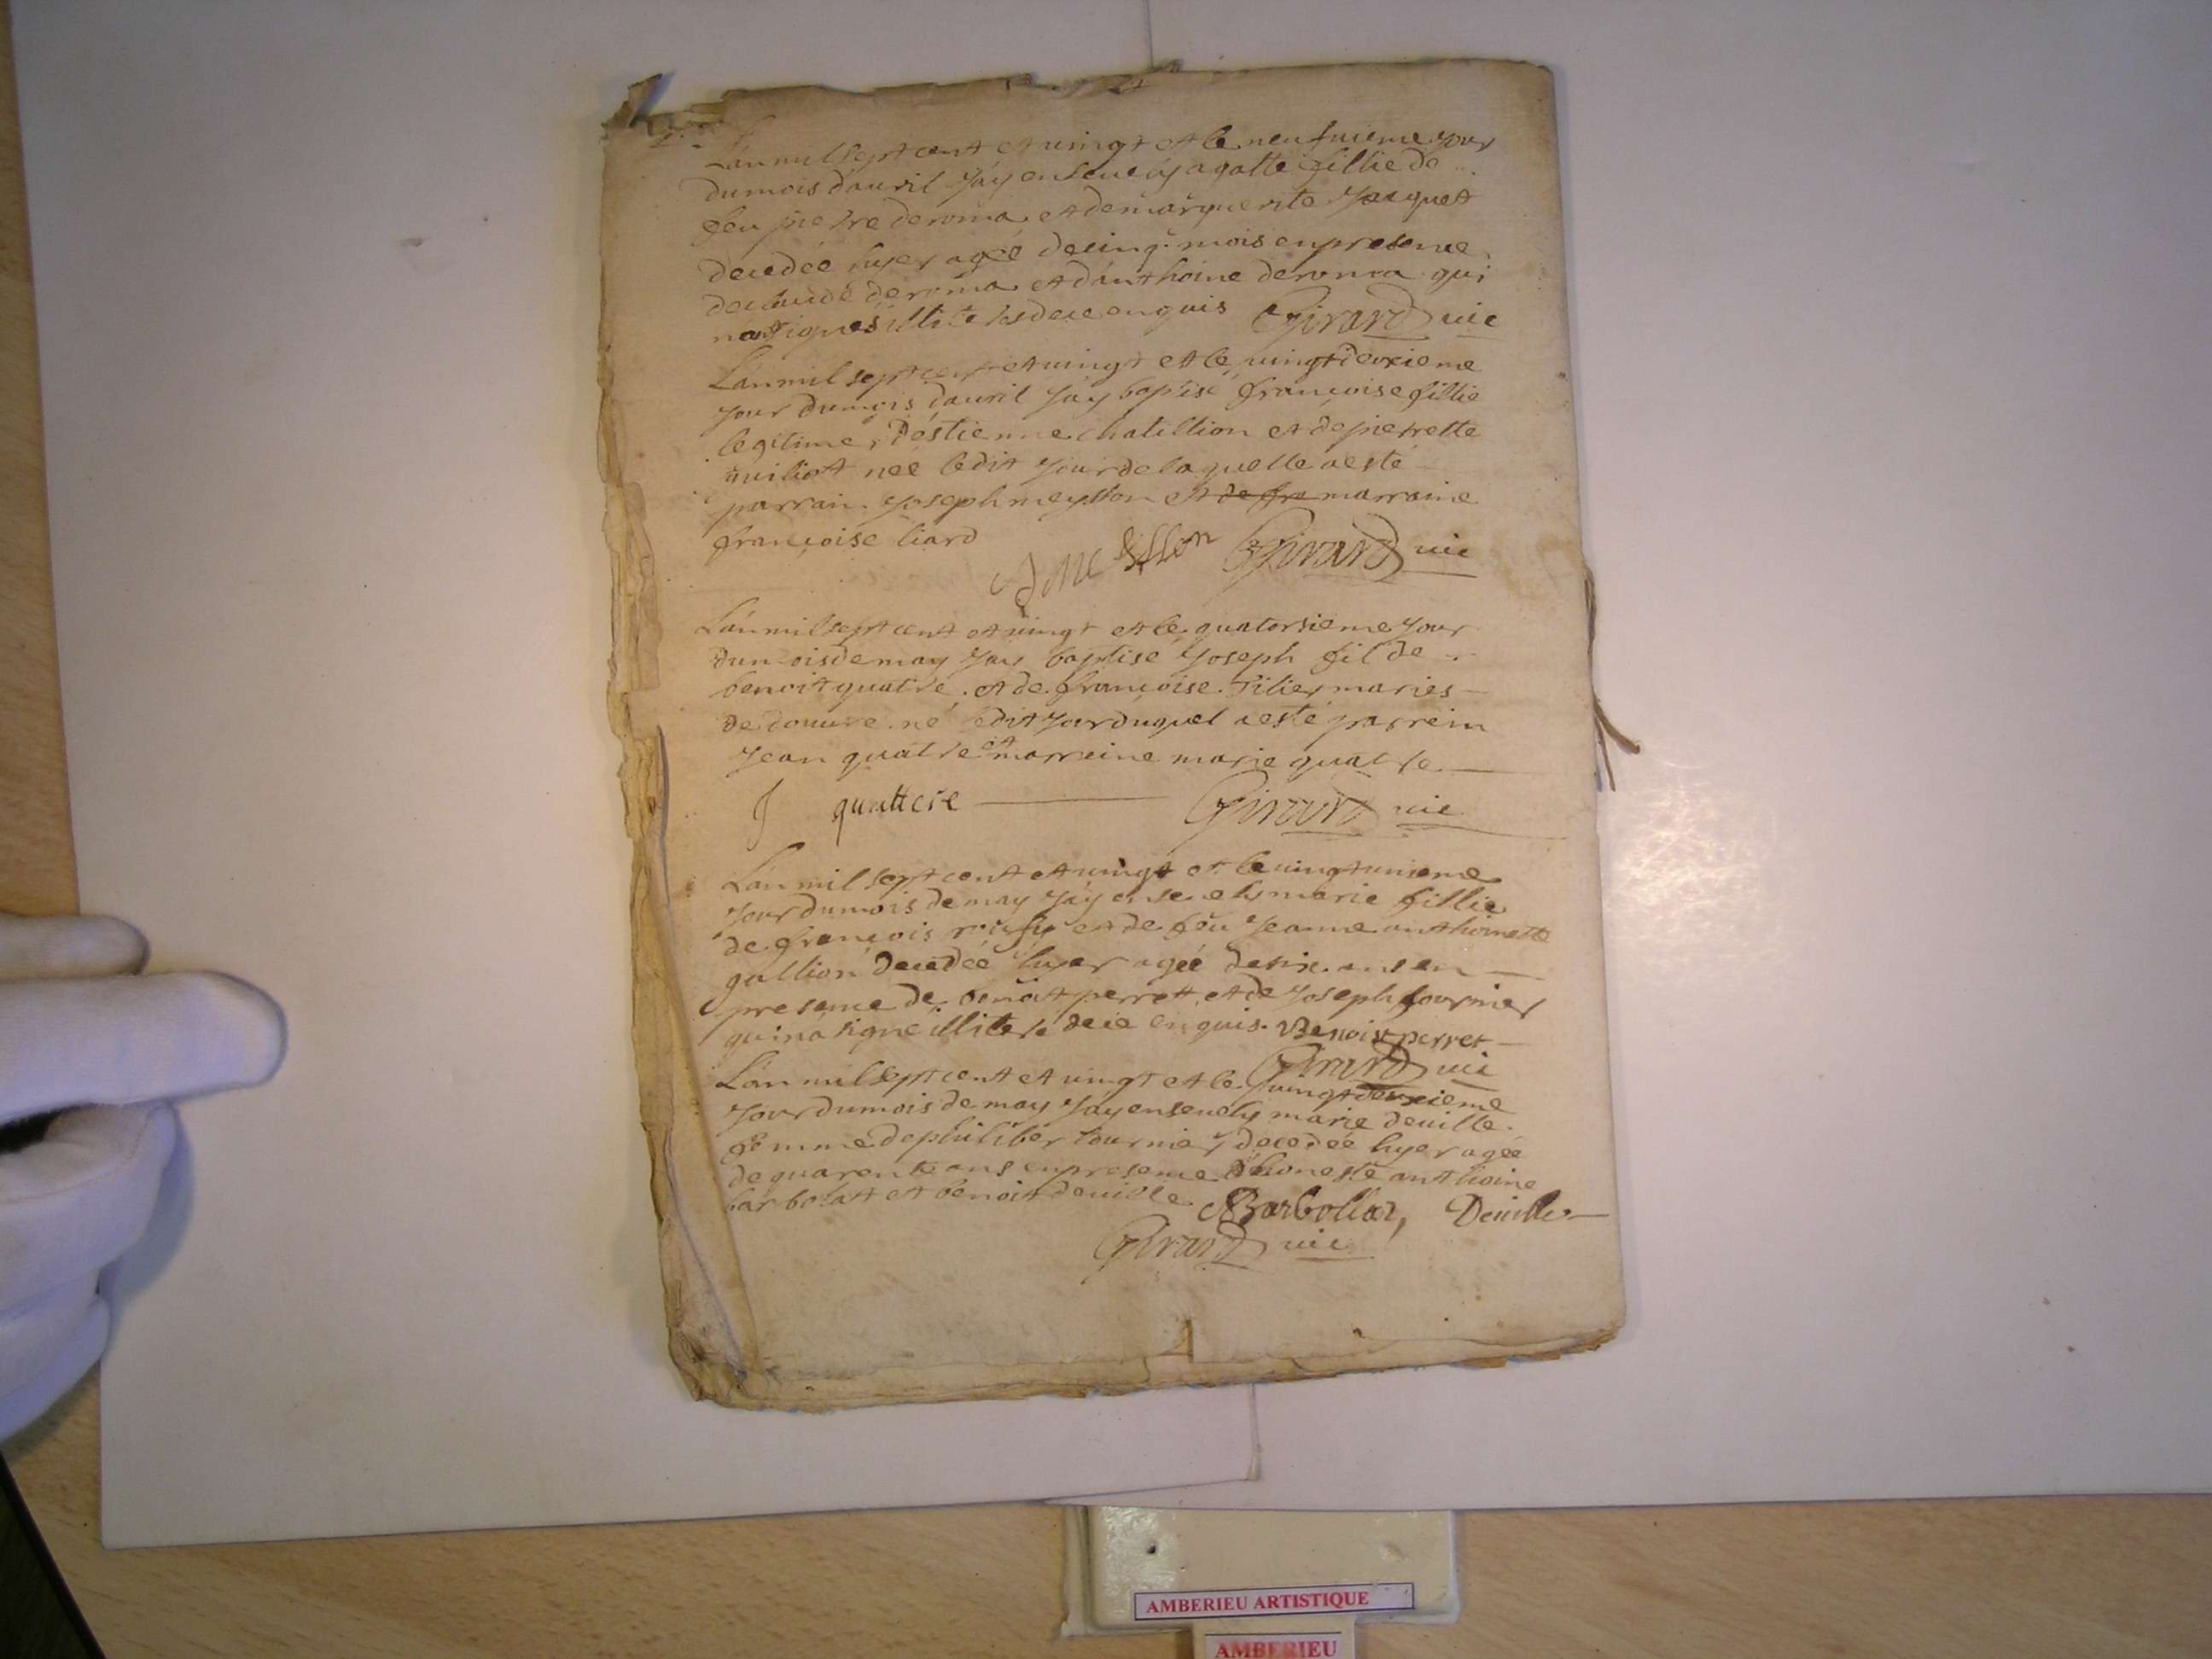 Lán mil sept cent et vingt et le neufuieme jour
du mois dáuril Jáy enseuely agatte fillie de
feu pierre deroma et de marguerite Jacquet
decedée hyer ageé de cinq mois en presence
de claude deroma et dánthoine deroma qui
Girard vic
Lán mil sept cent et vingt et le vingtdeuxieme
jour du mois dáuril Jáy baptisé françoise fillie
legitime déstienne chatillion et de pierrette
neé ledit jour de laquelle a esté
parrain Joseph meysson et de fra marraine
françoise liard
J Meysson Girard vic
Lán mil sept cent et vingt et le quatorsieme jour
du mois de may Jay baptisé Joseph fil de
benoit quatre et de françoise Tilier maries
de douure né ledit jour duquel a esté parrein
Jean quatre et marreine marie quatre
J quattere Girard vic
Lán mil sept cent et vingt et le vingtunieme
jour du mois de may Jáy enseuely marie fillie
de françois et de feu Jeanne anthoinette
gallion decedeé hyer ageé de six ans en
presence de benoit perret et de Joseph fournier
qui ná signé illiteré de ce enquis. Benoist perret
Girard vic
Lán mil sept cent et vingt et le vingtdeuxieme
jour du mois de may Jáy enseuely marie deuille
femme de philiber fournier decedeé hyer ageé
de quarente ans en presence dhoneste anthoine
barbolat et benoit deuille ABarbollat, Deuille
Girard vic
AMBERIEU ARTISTIQUE
AMBERIEU